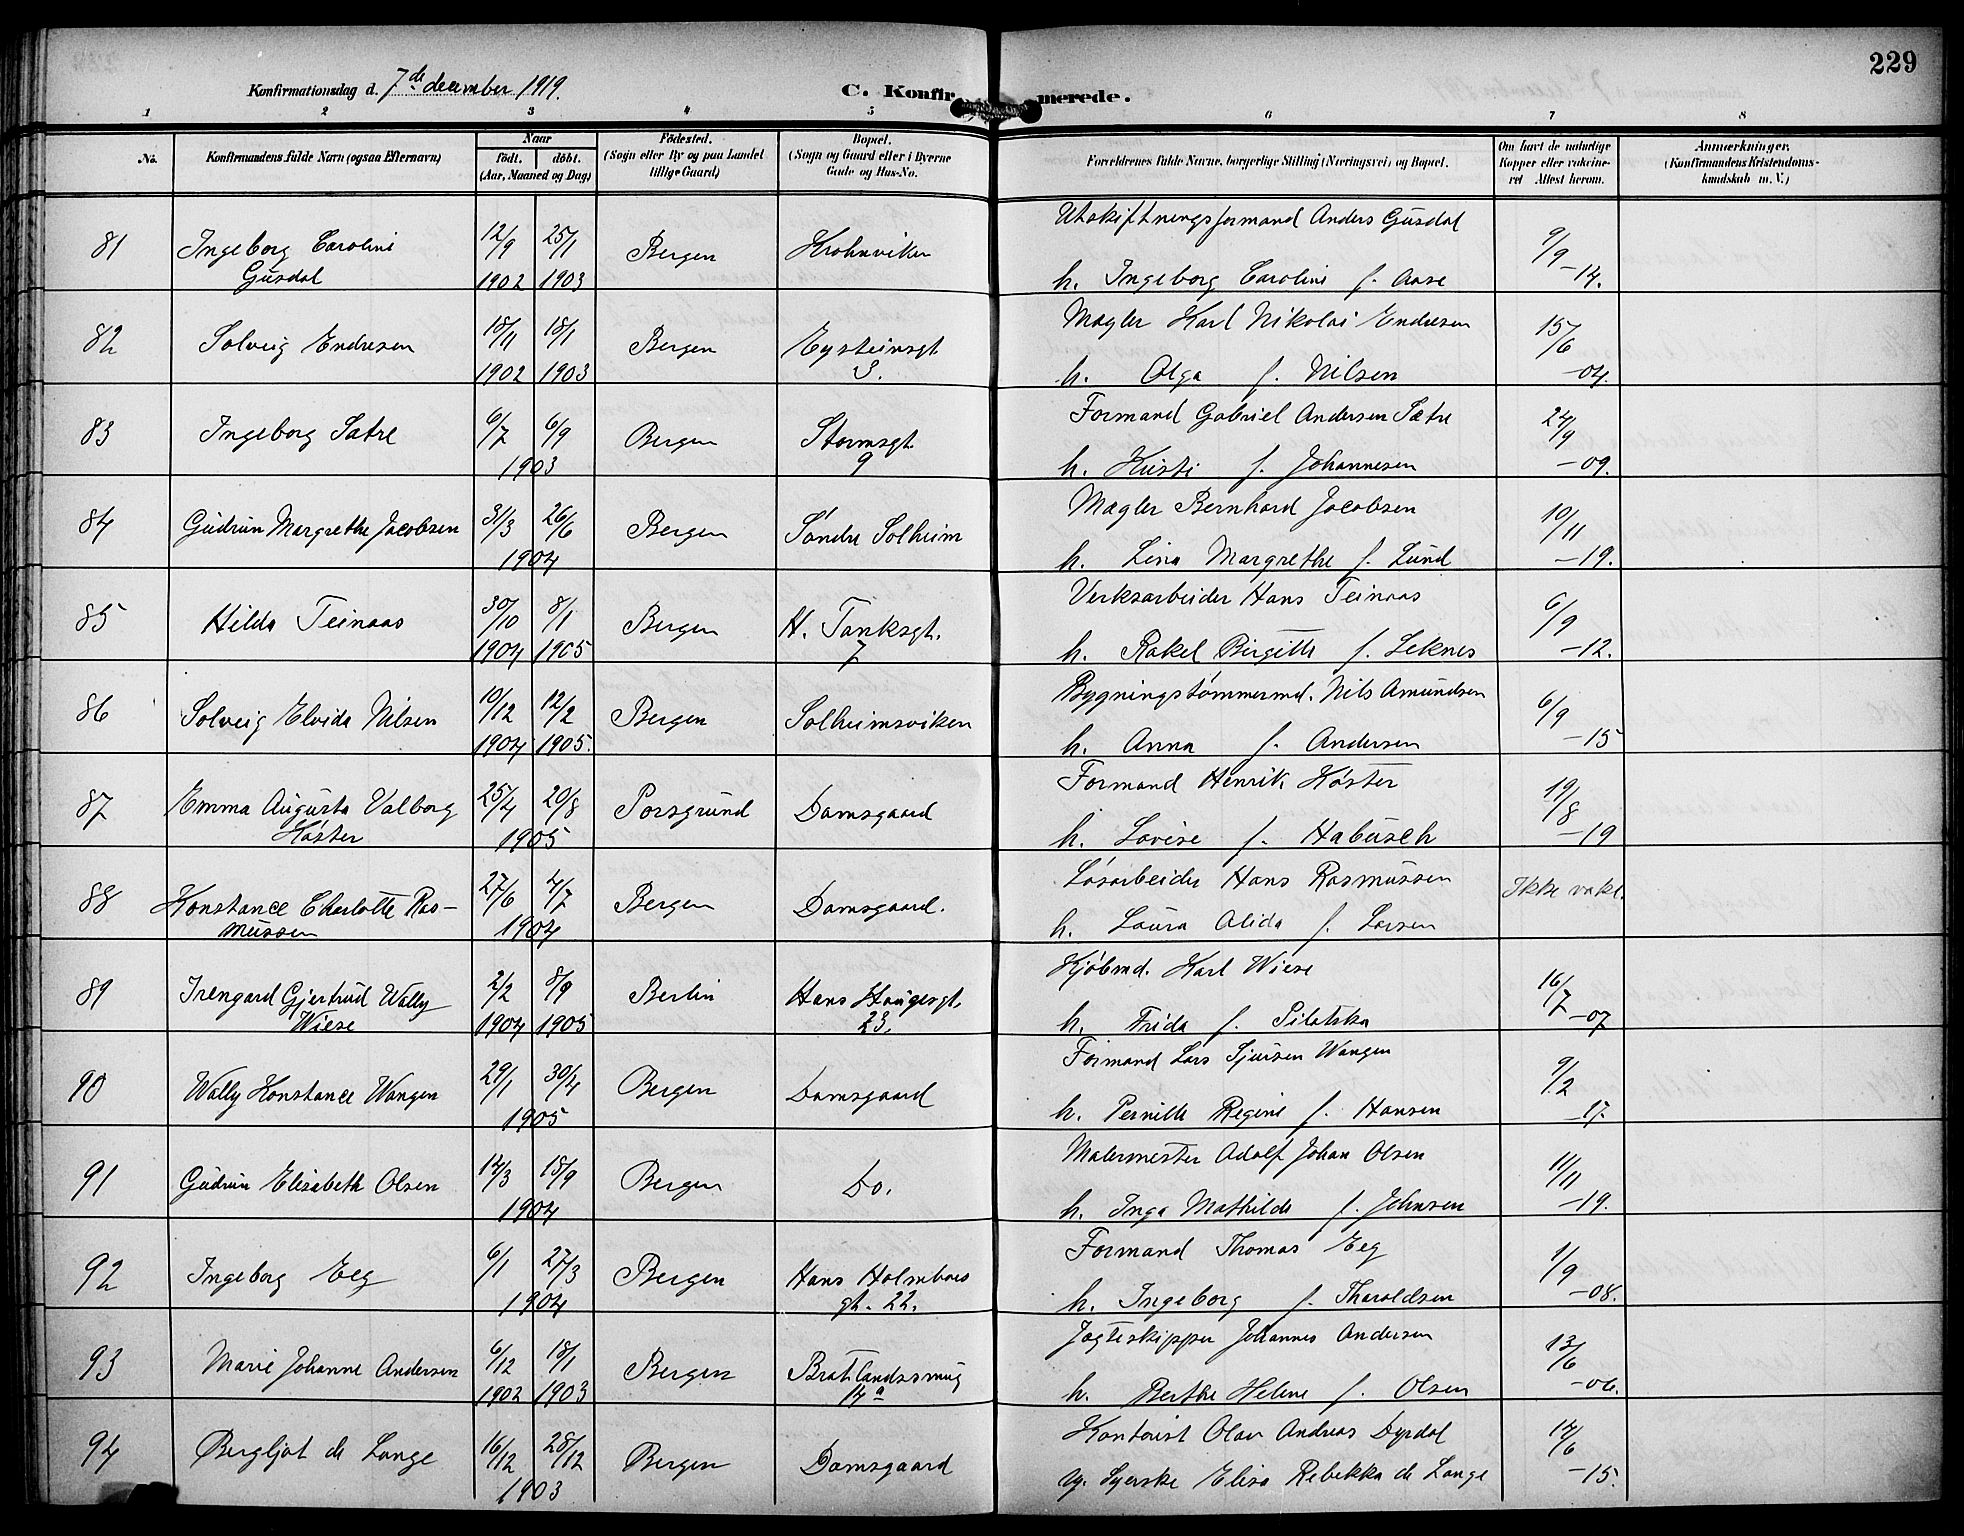 229
Konfirmationsdag d. 7de december 1919.
C. Konfirmerede.
1 2 3 4 5 6 7 8
No.
Konfirmandens fulde Navn (ogsaa Efternavn)
Naar
födt. döbt.
(Aar, Maaned og Dag)
Födested.
(Sogn eller By og paa Landet
tillige Gaard)
Bopæl.
(Sogn og Gaard eller i Byerne
Gade og Hus-No.
Forældrenes fulde Navne, borgerlige Stilling (Næringsvei) og Bopæl.
Om havt de naturlige
Kopper eller vakcine-
ret Attest herom.
Anmærkninger.
(Konfirmandens Kristendoms-
kundskab m. V.)
81 Ingeborg Caroline Gusdal 12/9 1902 25/1 1903 Bergen Krohnviken
Utskiftningsformand Anders Gusdal
h. Ingeborg Caroline f. Aase 9/9 -14.
82 Solveig Endresen 18/11 1902 18/1 1903 Bergen Eysteinsgt 3.
Mægler Karl Nikolai Endresen
h. Olga f. Nilsen 15/6 -04.
83 Ingeborg Sætre 6/7 6/9 1903 Bergen Stormsgt. 9
Formand Gabriel Andersen Sætre
h. Kristi f. Johannesen 24/9 -09.
84 Gudrun Margrethe Jacobsen 31/3 26/6 1904 Bergen Söndre Solheim
Mægler Bernhard Jacobsen
h. Lina Margrethe f. Lund 10/11 -19.
85 Hilda Teinaas 30/10 1904 8/1 1905 Bergen H. Tanksgt. 7
Verksarbeider Hans Teinaas
h. Rakel Birgitte f. Leknes 6/9 -12.
86 Solveig Elvida Nilsen 10/12 1904 12/2 1905. Bergen Solheimsviken
Bygningstömmermd. Nils Amundsen
h. Anna f. Andersen 6/9 -15
87 Emma Augusta Valborg Höster 25/4 20/8 1905 Porsgrund Damsgaard
Formand Henrik Höster
h. Lovise f. Habusch 19/8 -19
88 Konstance Charlotte Ras- mussen 27/6 4/7 1904 Bergen Damsgaard.
Lösarbeider Hans Rasmussen
h. Laura Alida f. Larsen Ikke vakc.
89 Irengard Gjertrud Wally Wiese 2/2 1904 8/9 1905 Berlin Hans Haugesgt. 23.
Kjöbmd. Karl Wiese
h. Frida f. Pilatska 16/7 -07
90 Wally Konstance Wangen 29/1 30/4 1905 Bergen Damsgaard
Formand Lars Sjursen Wangen
h. Pernille Regine f. Hansen 9/2 -17.
91 Gudrun Elisabeth Olsen 14/3 18/9 1904 Bergen Do.
Malermester Adolf Johan Olsen
h. Inga Mathilde f. Johnsen 11/11 -19.
92 Ingeborg Eeg 6/1 27/3 1904 Bergen Hans Holmboes gt. 22.
Formand Thomas Eeg
h. Ingeborg f. Tharaldsen 1/9 -08.
93 Marie Johanne Andersen 6/12 1902 18/1 1903 Bergen Bratlandssmug 14a
Jægteskipper Johannes Andersen
h. Berthe Helene f. Olsen 13/6 -06.
94 Bergljot de Lange 16/12 28/12 1903 Bergen Damsgaard
Kontorist Olav Andreas Dyrdal
og Syerske Elisa Rebekka de Lange 14/6 -15.